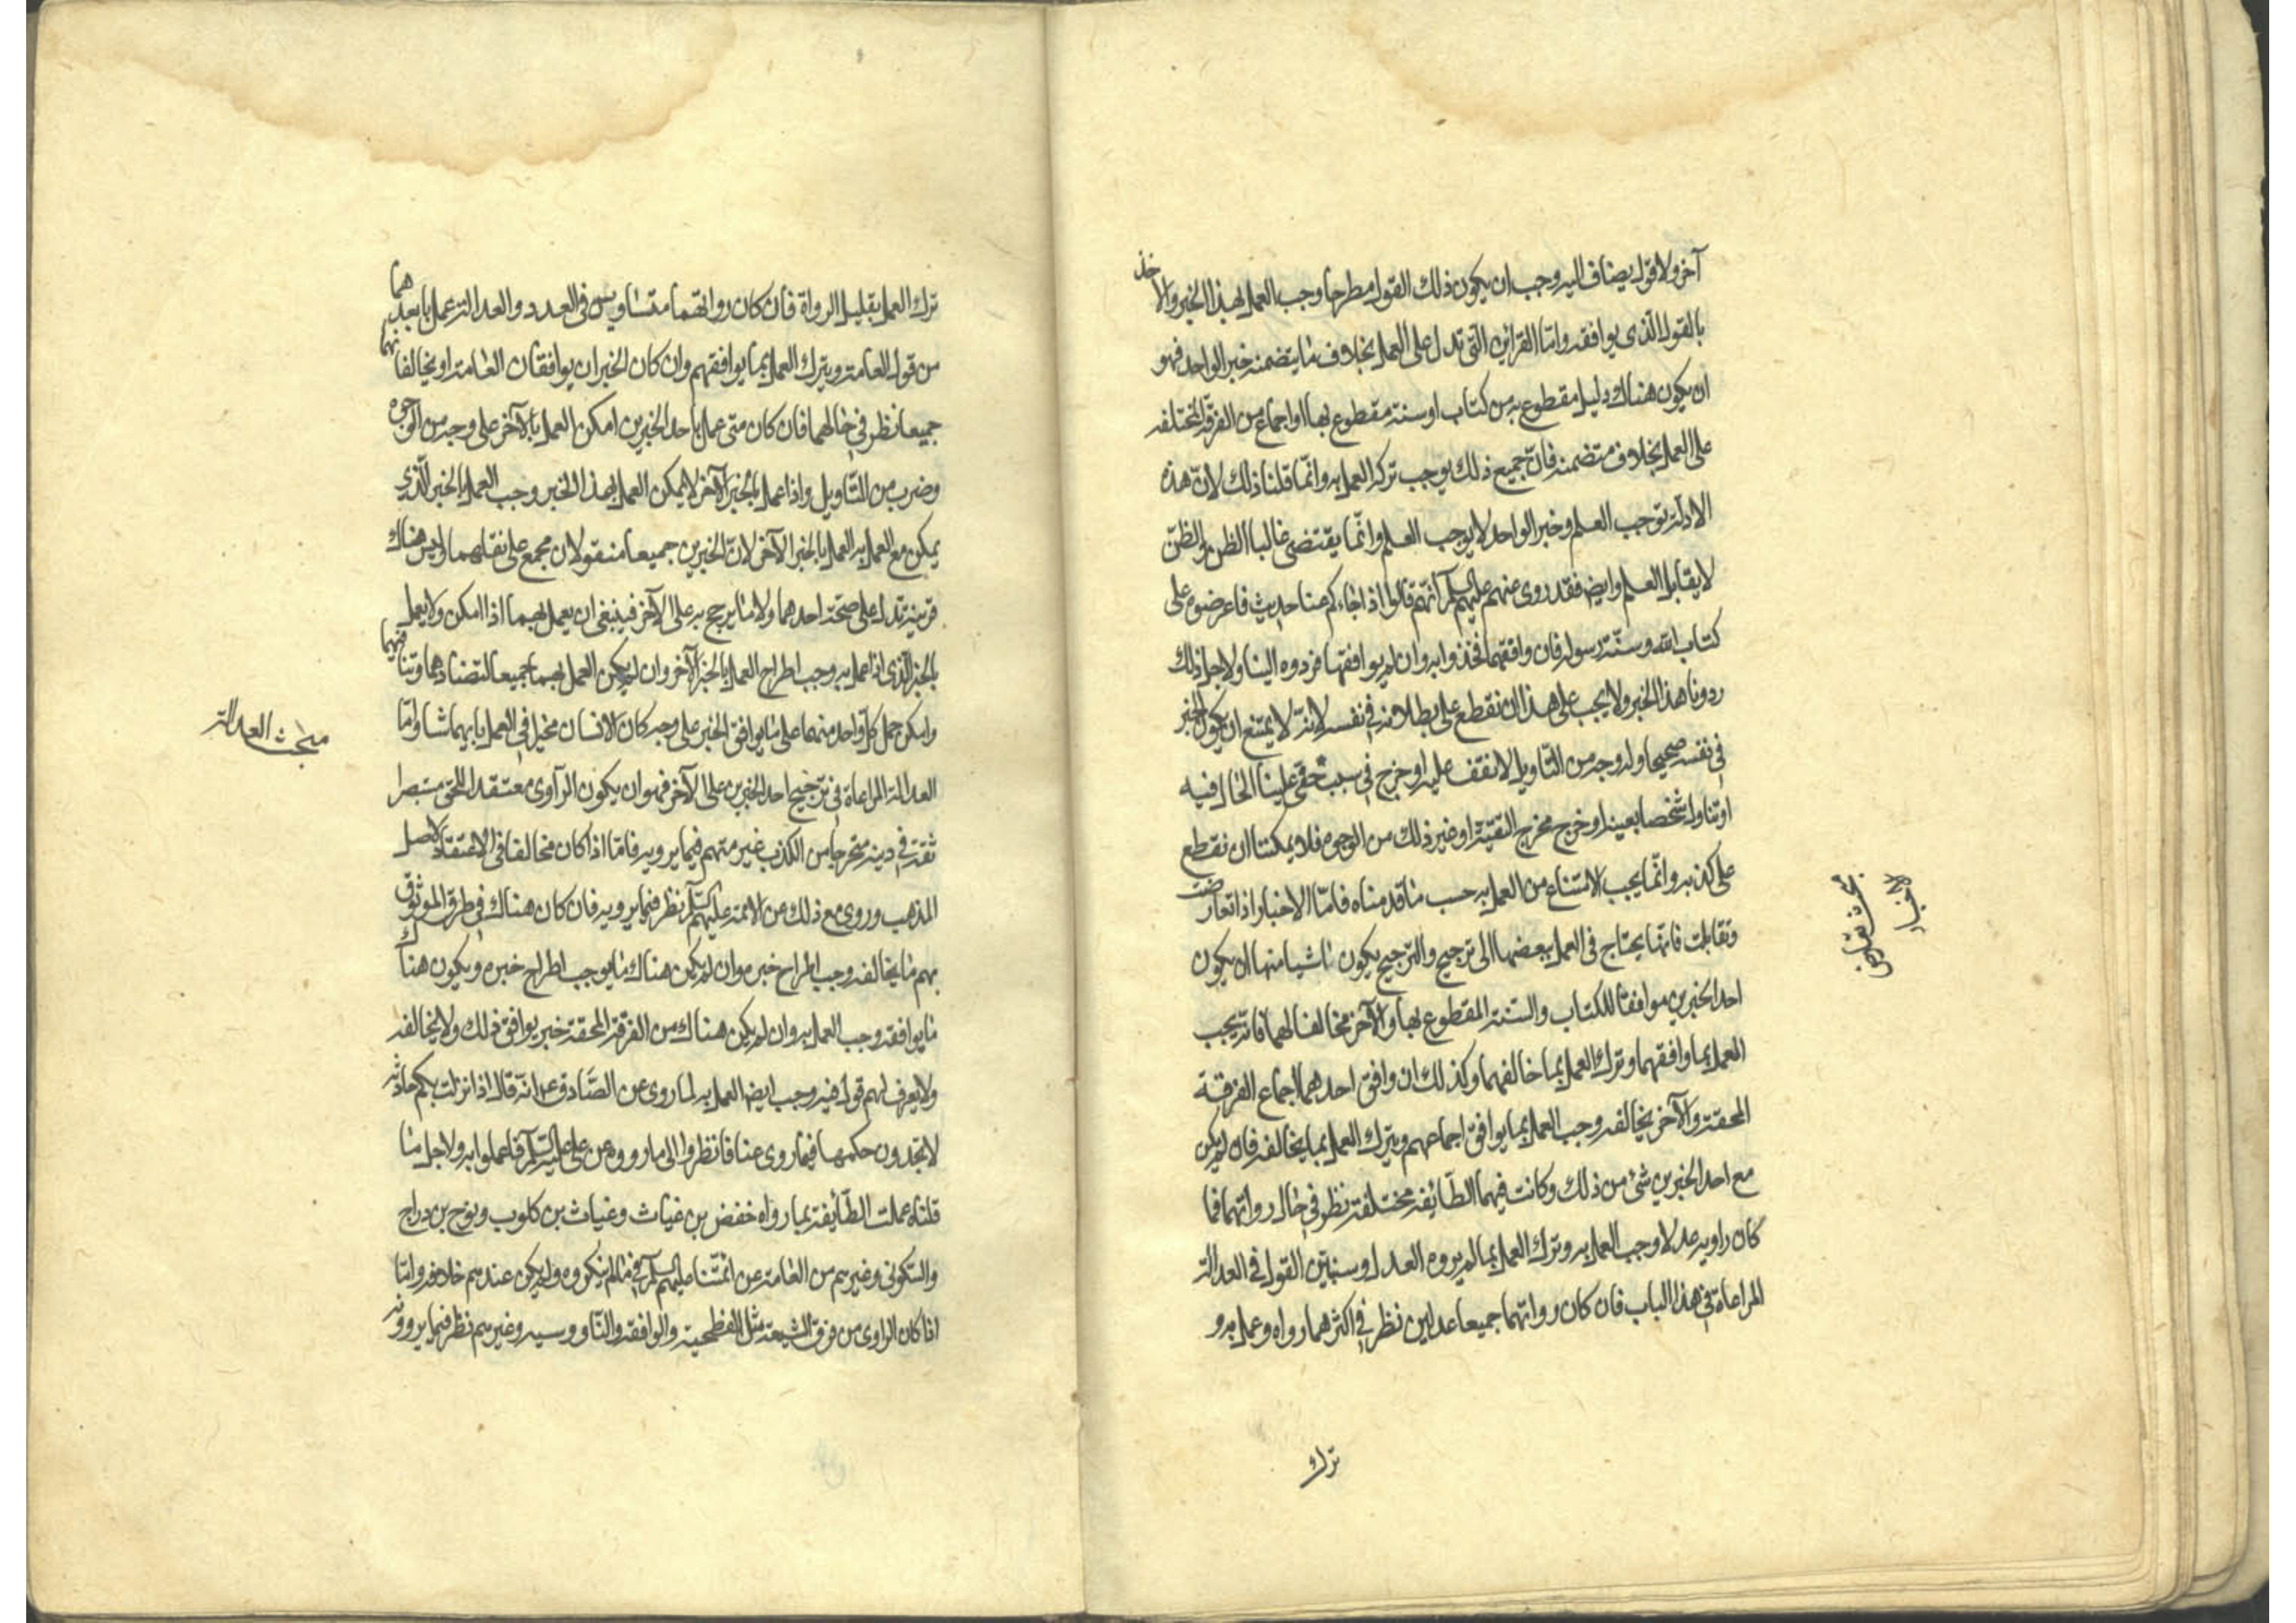 آخر ولا قول يضاف اليه وجب ان يكون ذلك القول مطرحا وجب العمل بهذا الخبر والاخذ
بالقول الذى يوافقه وامّا القراين التى تدل على العمل بخلاف ما يتضمنه خبر الواحد فهو
ان يكون هناك دليل مقطوع به من كتاب او سنة مقطوع بها او اجماع من الفرقة المختلفه
على العمل بخلاف متضمنه فانّ جميع ذلك يوجب ترك العمل به وانّما قلنا ذلك لانّ هذه
الادلة توجب العلم وخبر الواحد لا يوجب العلم وانّما يقتضى غالبا الظن والظنّ
لا يقابل العلم وايض فقد روى عنهم عليهم السلم انّهم قالوا اذا جاءكم عنا حديث فاعرضوه على
كتاب الله وسنّة رسوله فان وافقهما فخذوا به وان لم يوافقها فردوه الينا ولاجل ذلك
ردونا هذا الخبر ولا يجب على هذا ان نقطع على بطلانه فى نفسه لانّه لا يمتنع ان يكون الخبر
فى نفسه صحيحا وله وجه من التاويل لا نقف عليه او خرج فى سبب خفى علينا الحال فيه
او تناول شخصا بعينه او خرج مخرج التقيّة او غير ذلك من الوجوه فلا يمكننا ان نقطع
على كذبه وانّما يجب الامتناع من العمل به حسب ما قدمناه فامّا الاخبار اذا تعارضت
وتقابلت فانّها يحتاج فى العمل ببعضها الى ترجيح والترجيح يكون باشيا منها ان يكون
احد الخبرين موافقا للكتاب والسنة المقطوع بها والآخر مخالفا لهما فانّه يجب
العمل بما وافقهما وترك العمل بما خالفهما وكذلك ان وافق احدهما اجماع الفرقة
المحقة والآخر يخالفه وجب العمل بما يوافق اجماعهم ويترك العمل بما يخالفه فان لم يكن
مع احد الخبرين شئ من ذلك وكانت فيهما الطايفة مختلفة نظر فى حال رواتهما فما
كان راويه عدلا وجب العمل به وترك العمل بما لم يروه العدل وسنبيّن القول فى العدالة
المراعاة فى هذا الباب فان كان رواتهما جميعا عدلين نظر فى اكثرهما رواه وعمل به و
ترك
بحث تعارض
الاخبار
ترك العمل بقليل الرواة فان كان رواتهما متساويين فى العدد والعدالة عمل بابعدهما
من قول العامة ويترك العمل بما يوافقهم وان كان الخبران يوافقان العامة او يخالفانهما
جميعا نظر فى حالهما فان كان متى عمل باحد الخبرين امكن العمل بالآخر على وجه من الوجوه
وضرب من التاويل واذا عمل بالخبر الآخر لا يمكن العمل بهذا الخبر وجب العمل بالخبر الّذى
يمكن مع العمل به العمل بالخبر الآخر لانّ الخبرين جميعا منقولان مجمع على نقلهما وليس هناك
قرينة تدل على صحّة احدهما ولا ما يرجح به على الآخر فينبغى ان يعمل بهما اذا امكن ولا يعمل
بالخبر الّذى اذا عمل به وجب اطراح العمل بالخبر الآخر وان لم يمكن العمل بهما جميعا لتضادهما وتنافيهما
وامكن حمل كل واحد منهما على ما يوافق الخبر على وجه كان الانسان مخيرا فى العمل بايهما شا وامّا
العدالة المراعاة فى ترجيح احد الخبرين على الآخر فهو ان يكون الرآوى معتقدا للحق مستبصرا
ثقة فى دينه متحرجا من الكذب غير متهم فيما يرويه فامّا اذا كان مخالفا فى الاعتقاد لاصل
المذهب وروى مع ذلك عن الائمة عليهم السلم نظر فيما يرويه فان كان هناك فى طرق الموثوق
بهم ما يخالفه وجب اطراح خبره وان لم يكن هناك ما يوجب اطراح خبره ويكون هناك
ما يوافقه وجب العمل به وان لم يكن هناك من الفرقة المحقة خبر يوافق ذلك ولا يخالفه
ولا يعرف لهم قول فيه وجب ايض العمل به لما روى عن الصّادق ع انّه قال اذا نزلت بكم حادثة
لا تجدون حكمها فيما روى عنا فانظروا الى ما رووه عن على عليه السلم فاعملوا به ولاجل ما
قلناه عملت الطّايفة بما رواه حفض بن غياث وغياث بن كلوب ونوح بن دراج
والسكونى وغيرهم من العامة عن ائمّتنا عليهم السلم فى ما لم ينكروه ولم يكن عندهم خلافه وامّا
اذا كان الراوى من فرق الشيعة مثل الفطحية والواقفه والنّاووسيه وغيرهم نظر فيما يروونه
مبحث العدالة